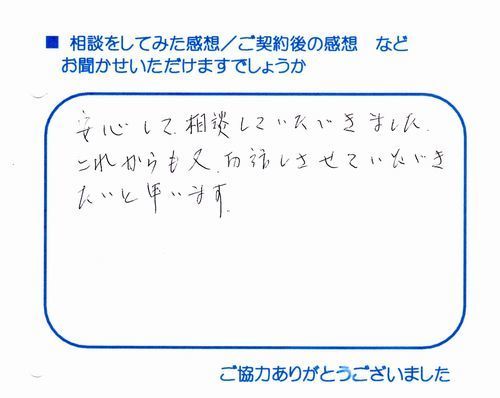 ■ 相談をしてみた感想／ご契約後の感想 など
お聞かせいただけますでしょうか
安心して、相談していただきました。
これからも又、お話しさせていただき
たいと思います。
ご協力ありがとうございました